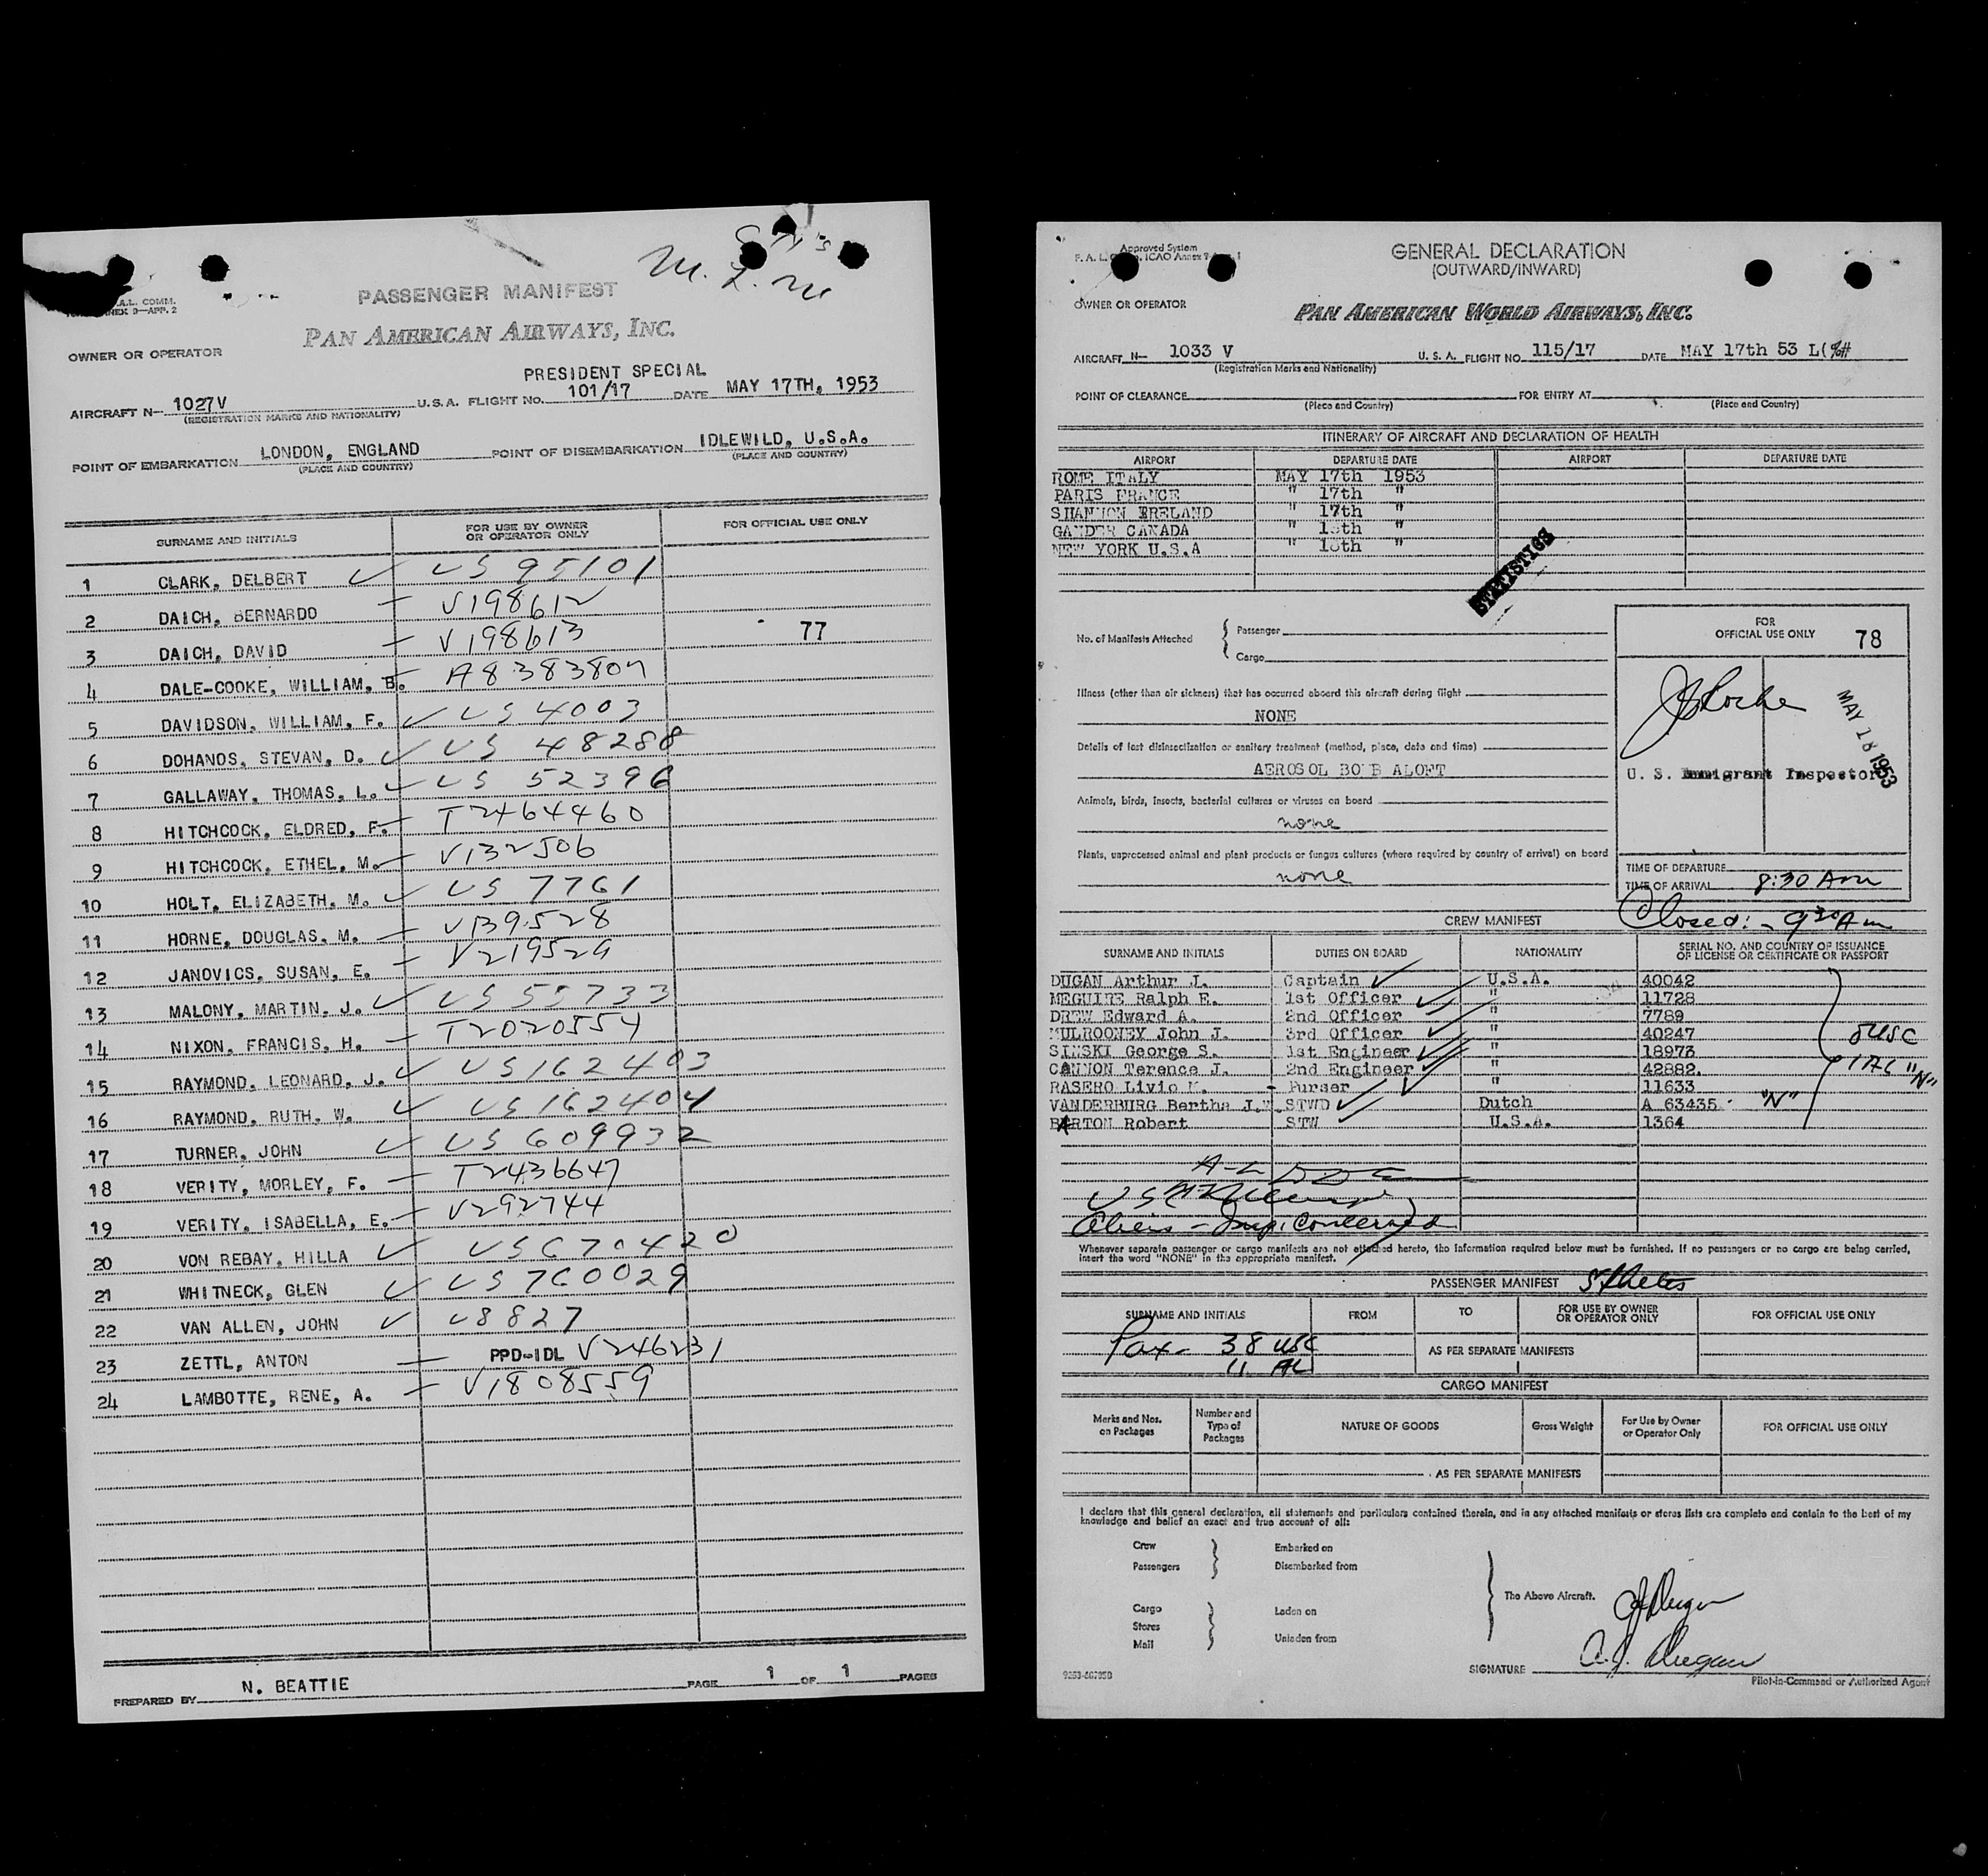 M. L. M
A.L. COMM.
ANNEX 9—APP. 2
PASSENGER MANIFEST
PAN AMERICAN AIRWAYS, INC.
OWNER OR OPERATOR
PRESIDENT SPECIAL
AIRCRAFT N— 1027V U.S.A. FLIGHT NO. 101/17 DATE MAY 17TH, 1953
(REGISTRATION MARKS AND NATIONALITY)
POINT OF EMBARKATION LONDON, ENGLAND POINT OF DISEMBARKATION IDLEWILD, U.S.A.
(PLACE AND COUNTRY) (PLACE AND COUNTRY)
SURNAME AND INITIALS FOR USE BY OWNER OR OPERATOR ONLY FOR OFFICIAL USE ONLY
1 CLARK, DELBERT ✓ US 95101
2 DAICH, BERNARDO — V198612
3 DAICH, DAVID — V198613 77
4 DALE-COOKE, WILLIAM, B. — A8383807
5 DAVIDSON, WILLIAM, F. ✓ US 4003
6 DOHANOS, STEVAN, D. ✓ US 48288
7 GALLAWAY, THOMAS, L. ✓ US 52396
8 HITCHCOCK, ELDRED, F. — T2464460
9 HITCHCOCK, ETHEL, M. — V132506
10 HOLT, ELIZABETH, M. ✓ US 7761
11 HORNE, DOUGLAS, M. — V139528
12 JANOVICS, SUSAN, E. — V219529
13 MALONY, MARTIN, J. ✓ US 55733
14 NIXON, FRANCIS, H. — T2020554
15 RAYMOND, LEONARD, J. ✓ US 162403
16 RAYMOND, RUTH, W. ✓ US 162404
17 TURNER, JOHN ✓ US 609932
18 VERITY, MORLEY, F. — T2436647
19 VERITY, ISABELLA, E. — V292744
20 VON REBAY, HILLA ✓ US 670420
21 WHITNECK, GLEN ✓ US 760029
22 VAN ALLEN, JOHN ✓ U8827
23 ZETTL, ANTON — PPD-IDL V246231
24 LAMBOTTE, RENE, A. — V1808559
PREPARED BY N. BEATTIE PAGE 1 OF 1 PAGES
Approved System
F. A. L. ICAO Annex 9
GENERAL DECLARATION
(OUTWARD/INWARD)
OWNER OR OPERATOR PAN AMERICAN WORLD AIRWAYS, INC.
AIRCRAFT N— 1033 V U. S. A. FLIGHT NO. 115/17 DATE MAY 17th 53 L(%#
(Registration Marks and Nationality)
POINT OF CLEARANCE FOR ENTRY AT
(Place and Country) (Place and Country)
ITINERARY OF AIRCRAFT AND DECLARATION OF HEALTH
AIRPORT DEPARTURE DATE AIRPORT DEPARTURE DATE
ROME ITALY MAY 17th 1953
PARIS FRANCE " 17th "
SHANNON IRELAND " 17th "
GANDER CANADA " 18th "
NEW YORK U.S.A " 18th "
STATISTICS
No. of Manifests Attached { Passenger
Cargo
FOR OFFICIAL USE ONLY 78
MAY 18 1953
U. S. Immigrant Inspector
Illness (other than air sickness) that has occurred aboard this aircraft during flight
NONE
Details of last disinsectization or sanitary treatment (method, place, date and time)
AEROSOL BOMB ALOFT
Animals, birds, insects, bacterial cultures or viruses on board
none
Plants, unprocessed animal and plant products or fungus cultures (where required by country of arrival) on board
none
TIME OF DEPARTURE
TIME OF ARRIVAL 8:30 Am
Closed: - 9 30 Am
CREW MANIFEST
SURNAME AND INITIALS DUTIES ON BOARD NATIONALITY SERIAL NO. AND COUNTRY OF ISSUANCE OF LICENSE OR CERTIFICATE OR PASSPORT
DUGAN Arthur J. Captain ✓ U.S.A. 40042
MEGUIRE Ralph E. 1st Officer ✓ " 11728
DREW Edward A. 2nd Officer ✓ " 7789
MULROONEY John J. 3rd Officer ✓ " 40247
SIMSKI George S. 1st Engineer ✓ " 18973
CANNON Terence J. 2nd Engineer ✓ " 42882.
RASERO Livio M. - Purser ✓ " 11633
VANDERBURG Bertha J. STWD ✓ Dutch A 63435 "N"
BARTON Robert STW U.S.A. 1364
8 USC
1 AL "N"
Whenever separate passenger or cargo manifests are not attached hereto, the information required below must be furnished. If no passengers or no cargo are being carried,
insert the word "NONE" in the appropriate manifest.
PASSENGER MANIFEST
SURNAME AND INITIALS FROM TO FOR USE BY OWNER OR OPERATOR ONLY FOR OFFICIAL USE ONLY
Pax - 38 USC
11 AL
AS PER SEPARATE MANIFESTS
CARGO MANIFEST
Marks and Nos. on Packages Number and Type of Packages NATURE OF GOODS Gross Weight For Use by Owner or Operator Only FOR OFFICIAL USE ONLY
AS PER SEPARATE MANIFESTS
I declare that this general declaration, all statements and particulars contained therein, and in any attached manifests or stores lists are complete and contain to the best of my
knowledge and belief an exact and true account of all:
Crew Embarked on
Passengers Disembarked from
The Above Aircraft.
Cargo Laden on
Stores
Mail Unladen from
SIGNATURE A. J. Dugan
Pilot-in-Command or Authorized Agent